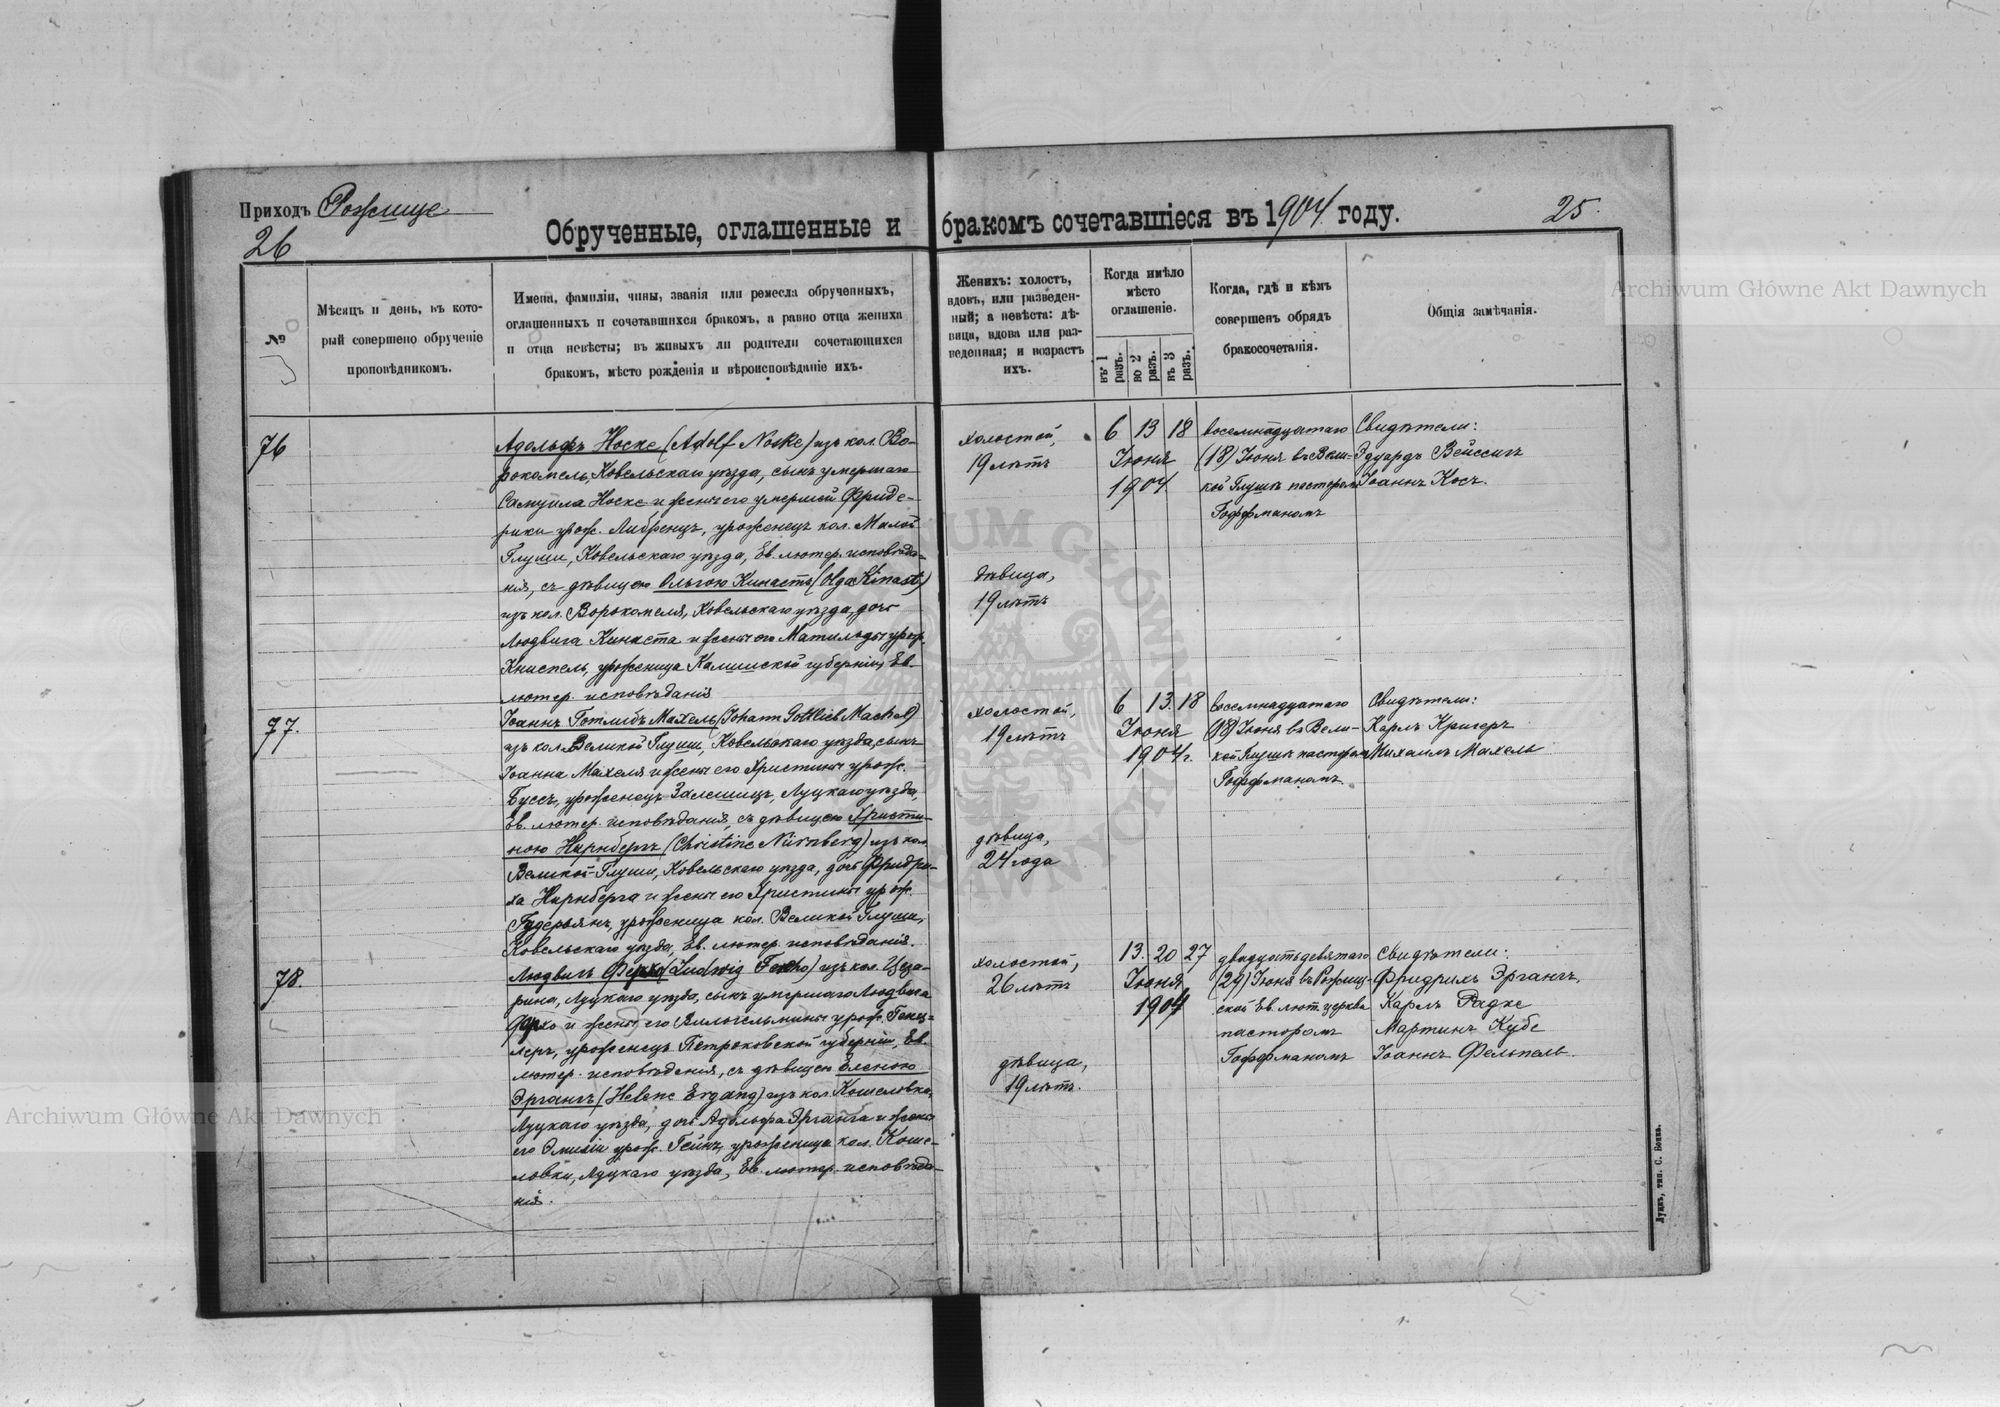 Приходъ Рожище
26
Обрученные, оглашенные и бракомъ сочетавшіеся въ 1904 году.
25.
№
Мѣсяцъ и день, въ кото-
рый совершено обрученіе
проповѣдникомъ.
Имена, фамиліи, чины, званія или ремесла обрученныхъ,
оглашенныхъ и сочетавшихся бракомъ, а равно отца жениха
и отца невѣсты; въ живыхъ ли родители сочетающихся
бракомъ, мѣсто рожденія и вѣроисповѣданіе ихъ.
Женихъ: холостъ,
вдовъ, или разведен-
ный; а невѣста: дѣ-
вица, вдова или раз-
веденная; и возрастъ
ихъ.
Когда имѣло
мѣсто
оглашеніе.
въ 1 разъ.
во 2 разъ.
въ 3 разъ.
Когда, гдѣ и кѣмъ
совершенъ обрядъ
бракосочетанія.
Общія замѣчанія.
76
Адольфъ Носке (Adolf Noske) изъ кол. Во-
рокомель, Ковельскаго уѣзда, сынъ умершаго
Самуила Носке и жены его умершей Фриде-
рики урож. Либренцъ, уроженецъ кол. Малой
Глуши, Ковельскаго уѣзда, Ев. лютер. исповѣда-
нія, съ дѣвицею Ольгою Кинастъ (Olga Kinast)
изъ кол. Ворокомеля, Ковельскаго уѣзда, дочь
Людвига Кинаста и жены его Матильды урож.
Книспель, уроженица Калишской губерніи, Ев.
лютер. исповѣданія
холостой,
19 лѣтъ
дѣвица,
19 лѣтъ
6 13 18
Іюня
1904
восемнадцатаго
(18) Іюня въ Вели-
кой Глушѣ пасторомъ
Гоффманомъ
Свидѣтели:
Эдуардъ Вейссигъ
Іоаннъ Косъ.
77.
Іоаннъ Готлибъ Махель (Johann Gottlieb Machel)
изъ кол. Великой Глуши, Ковельскаго уѣзда, сынъ
Іоанна Махеля и жены его Христины урож.
Буссъ, уроженецъ Залешицъ, Луцкаго уѣзда,
Ев. лютер. исповѣданія, съ дѣвицею Христи-
ною Нирнбергъ (Christine Nürnberg) изъ кол.
Великой Глуши, Ковельскаго уѣзда, дочь Фридри-
ха Нирнберга и жены его Христины урож.
Гудерьянъ, уроженица кол. Великой Глуши,
Ковельскаго уѣзда, Ев. лютер. исповѣданія.
холостой,
19 лѣтъ
дѣвица,
24 года
6 13. 18
Іюня
1904 г.
восемнадцатаго
(18) Іюня въ Вели-
кой Глушѣ пасторомъ
Гоффманомъ.
Свидѣтели:
Карлъ Кригеръ
Михаилъ Махель
78.
Людвигъ (Ludwig) изъ кол. Цеза-
рина, Луцкаго уѣзда, сынъ умершаго Людвига
и жены его Вильгельмины урож. Генц-
леръ, уроженецъ Петроковской губерніи, Ев.
лютер. исповѣданія, съ дѣвицею Еленою
Эргангъ (Helene Ergang) изъ кол. Кошеловка,
Луцкаго уѣзда, дочь Адольфа Эрганга и жены
его Эмиліи урож. Гейнъ, уроженица кол. Коше-
ловки, Луцкаго уѣзда, Ев. лютер. исповѣда-
нія.
холостой,
26 лѣтъ
дѣвица,
19 лѣтъ.
13. 20 27
Іюня
1904
двадцать девятаго
(29) Іюня въ Рожищ-
ской Ев. лют. церкви
пасторомъ
Гоффманомъ
Свидѣтели:
Фридрихъ Эргангъ,
Карлъ Радке
Мартинъ Кубе
Іоаннъ Фельпель.
Луцкъ, тип. С. Бокка.
Archiwum Główne Akt Dawnych
Archiwum Główne Akt Dawnych